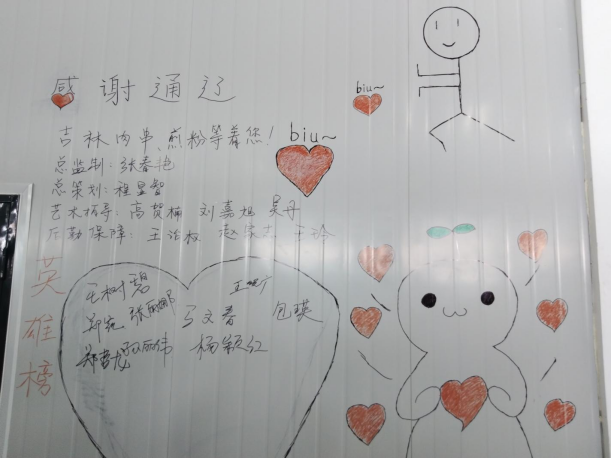 感谢通辽
biu~
吉林肉串、煎粉等着您！
biu~
总监制：张春艳
总策划：程显智
艺术指导：高贺楠 刘嘉旭 吴丹
后勤保障：王治权 赵家志 王玲
英雄榜
王树碧
郑苑 张丽娜 马文春 包瑛
孙丽伟 杨颖红